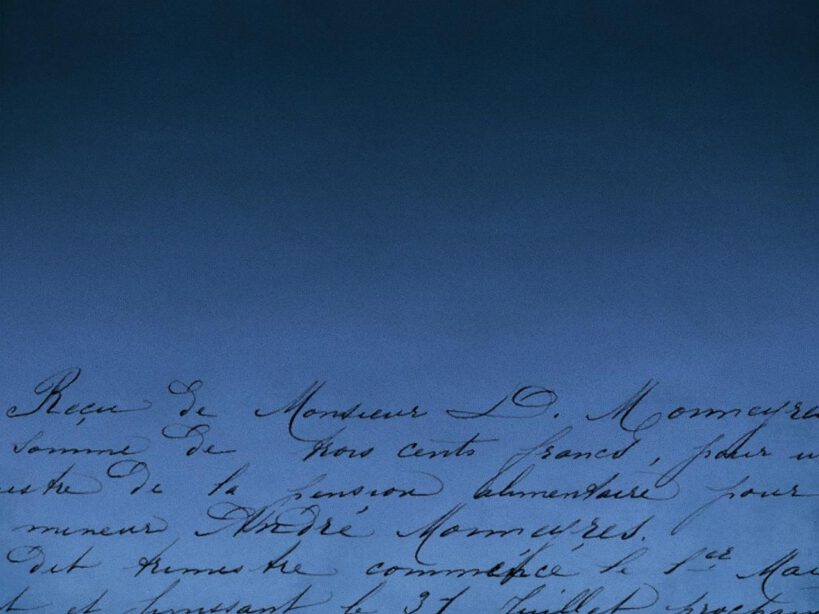 Reçu de Monsieur D. Monneyre
somme de trois cents francs, pour u
estre de la pension alimentaire pour
mineur André Monneyres.
Dit trimestre commencé le 1er Mai
t et finissant le 31 Juillet prochain